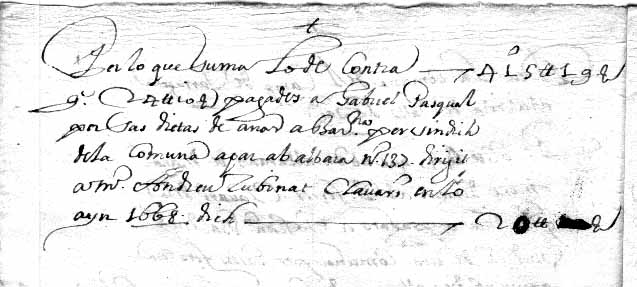 +
Per lo que suma lo de Contra 415 ₶ 19 ₰
pagades a Gabriel Pasqual
per sas dietas de anar a Bar.na per sindich
de la Comuna apar ab albara n.º 137 dirigit
a m.º Andreu Lubinat Clavari en lo
ayn 1668 dich 20 ₶